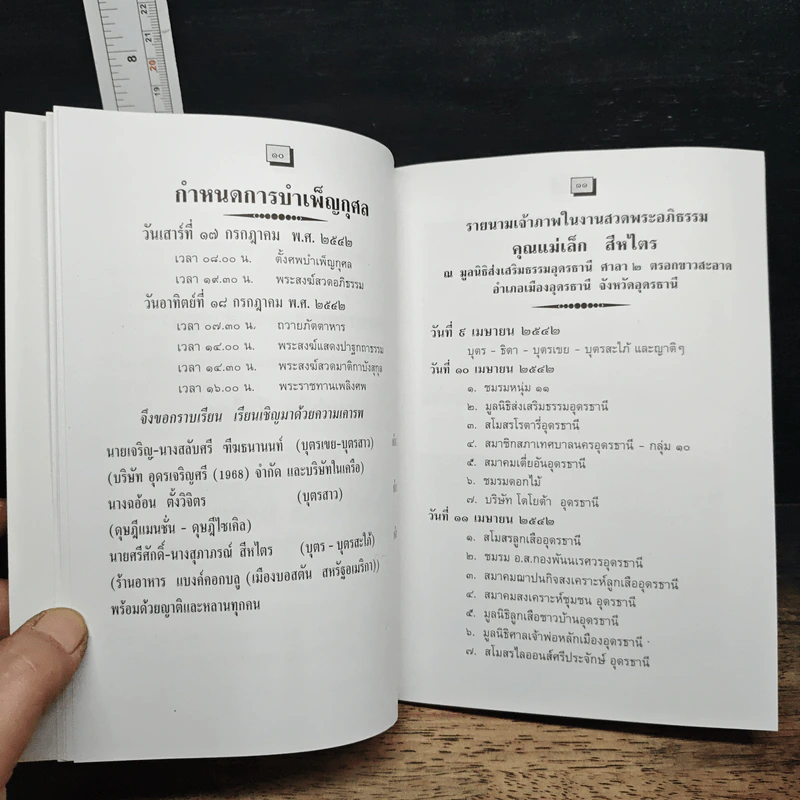 8
22
21
20
19
๑๐
กำหนดการบำเพ็ญกุศล
วันเสาร์ที่ ๑๗ กรกฎาคม พ.ศ. ๒๕๔๒
เวลา ๐๘.๐๐ น. ตั้งศพบำเพ็ญกุศล
เวลา ๑๙.๓๐ น. พระสงฆ์สวดอภิธรรม
วันอาทิตย์ที่ ๑๘ กรกฎาคม พ.ศ. ๒๕๔๒
เวลา ๐๗.๓๐ น. ถวายภัตตาหาร
เวลา ๑๔.๐๐ น. พระสงฆ์แสดงปาฐกถาธรรม
เวลา ๑๔.๓๐ น. พระสงฆ์สวดมาติกาบังสุกุล
เวลา ๑๖.๐๐ น. พระราชทานเพลิงศพ
จึงขอกราบเรียน เรียนเชิญมาด้วยความเคารพ
นายเจริญ-นางสลับศรี ทีฆธนานนท์ (บุตรเขย-บุตรสาว)
(บริษัท อุดรเจริญศรี (1968) จำกัด และบริษัทในเครือ)
นางฉอ้อน ตั้งวิจิตร (บุตรสาว)
(ดุษฎีแมนชั่น - ดุษฎีไซเคิล)
นายศรีศักดิ์-นางสุภาภรณ์ สีหไตร (บุตร - บุตรสะใภ้)
(ร้านอาหาร แบงค์คอกบลู (เมืองบอสตัน สหรัฐอเมริกา))
พร้อมด้วยญาติและหลานทุกคน
๑๑
รายนามเจ้าภาพในงานสวดพระอภิธรรม
คุณแม่เล็ก สีหไตร
ณ มูลนิธิส่งเสริมธรรมอุดรธานี ศาลา ๒ ตรอกขาวสะอาด
อำเภอเมืองอุดรธานี จังหวัดอุดรธานี
วันที่ ๙ เมษายน ๒๕๔๒
บุตร - ธิดา - บุตรเขย - บุตรสะใภ้ และญาติๆ
วันที่ ๑๐ เมษายน ๒๕๔๒
๑. ชมรมหนุ่ม ๑๑
๒. มูลนิธิส่งเสริมธรรมอุดรธานี
๓. สโมสรโรตารี่อุดรธานี
๔. สมาชิกสภาเทศบาลนครอุดรธานี - กลุ่ม ๑๐
๕. สมาคมเตี่ยอันอุดรธานี
๖. ชมรมดอกไม้
๗. บริษัท โตโยต้า อุดรธานี
วันที่ ๑๑ เมษายน ๒๕๔๒
๑. สโมสรลูกเสืออุดรธานี
๒. ชมรม อ.ส.กองพันนเรศวรอุดรธานี
๓. สมาคมฌาปนกิจสงเคราะห์ลูกเสืออุดรธานี
๔. สมาคมสงเคราะห์ชุมชน อุดรธานี
๕. มูลนิธิลูกเสือชาวบ้านอุดรธานี
๖. มูลนิธิศาลเจ้าพ่อหลักเมืองอุดรธานี
๗. สโมสรไลออนส์ศรีประจักษ์ อุดรธานี